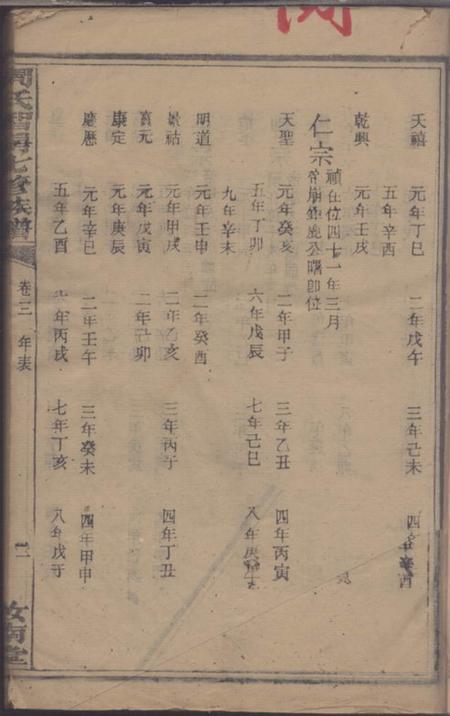 天禧 元年丁巳 二年戊午 三年己未 四
五年辛酉
乾興 元年壬戌
仁宗 禎在位四十一年三月
帝崩鉅鹿公曙即位
天聖 元年癸亥 二年甲子 三年乙丑 四年丙寅
五年丁卯 六年戊辰 七年己巳 八年庚
九年辛未
明道 元年壬申 二年癸酉
景祐 元年甲戌 二年乙亥 三年丙子 四年丁丑
寶元 元年戊寅 二年己卯
康定 元年庚辰
慶歷 元年辛巳 二年壬午 三年癸未 四年甲申
五年乙酉 六年丙戌 七年丁亥 八年戊子
周氏智房七修族譜 卷三 年表 二 汝南堂